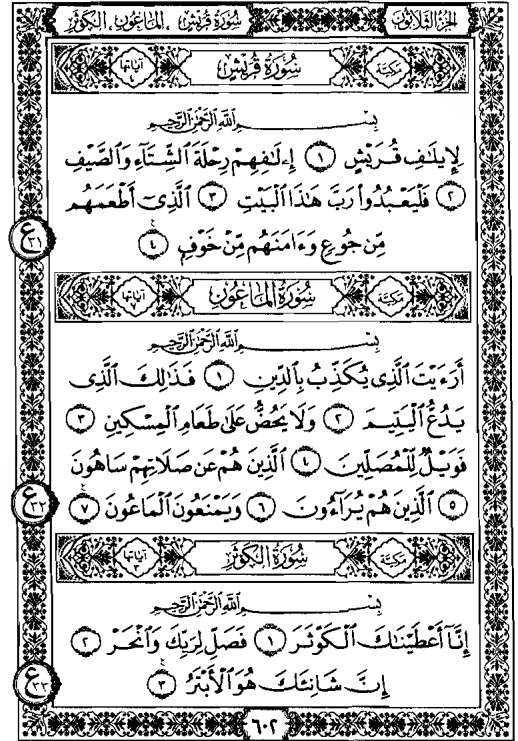 الجزء الثلاثون سورة قريش . الماعون . الكوثر
مكية سورة قريش آياتها ٤
بِسْمِ اللَّهِ الرَّحْمَٰنِ الرَّحِيمِ
لِإِيلَٰفِ قُرَيْشٍ ١ إِۦلَٰفِهِمْ رِحْلَةَ الشِّتَآءِ وَالصَّيْفِ
٢ فَلْيَعْبُدُوا۟ رَبَّ هَٰذَا الْبَيْتِ ٣ الَّذِىٓ أَطْعَمَهُم
مِّن جُوعٍ وَءَامَنَهُم مِّنْ خَوْفٍۭ ٤
ع ٣١
مكية سورة الماعون آياتها ٧
بِسْمِ اللَّهِ الرَّحْمَٰنِ الرَّحِيمِ
أَرَءَيْتَ الَّذِى يُكَذِّبُ بِالدِّينِ ١ فَذَٰلِكَ الَّذِى
يَدُعُّ الْيَتِيمَ ٢ وَلَا يَحُضُّ عَلَىٰ طَعَامِ الْمِسْكِينِ ٣
فَوَيْلٌ لِّلْمُصَلِّينَ ٤ الَّذِينَ هُمْ عَن صَلَاتِهِمْ سَاهُونَ
٥ الَّذِينَ هُمْ يُرَآءُونَ ٦ وَيَمْنَعُونَ الْمَاعُونَ ٧
ع ٣٢
مكية سورة الكوثر آياتها ٣
بِسْمِ اللَّهِ الرَّحْمَٰنِ الرَّحِيمِ
إِنَّآ أَعْطَيْنَٰكَ الْكَوْثَرَ ١ فَصَلِّ لِرَبِّكَ وَانْحَرْ ٢
إِنَّ شَانِئَكَ هُوَ الْأَبْتَرُ ٣
ع ٣٣
٦٠٢